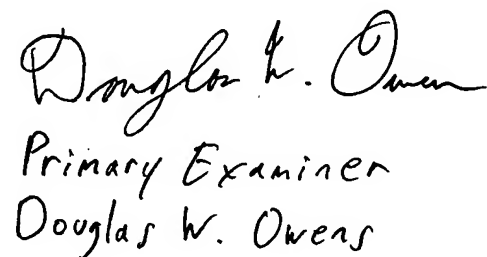 Douglas W. Owens
Primary Examiner
Douglas W. Owens